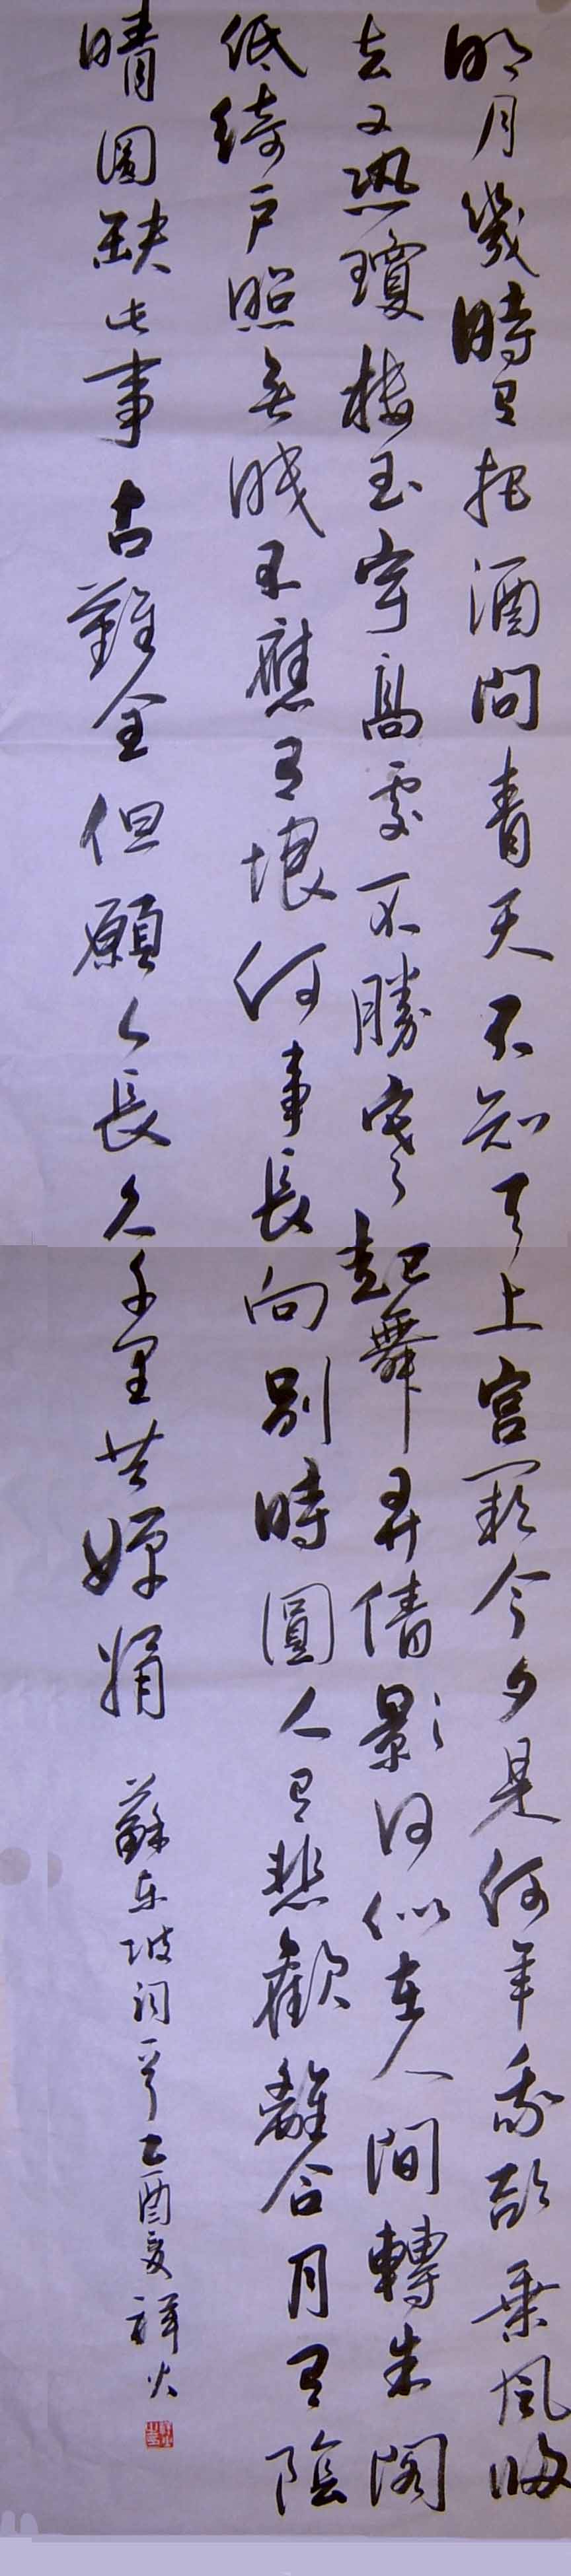 明月幾時有把酒問青天不知天上宮闕今夕是何年我欲乘風歸
去又恐瓊樓玉宇高處不勝寒起舞弄倩影何似在人間轉朱閣
低綺戶照無眠不應有恨何事長向別時圓人有悲歡離合月有陰
晴圓缺此事古難全但願人長久千里共嬋娟 蘇東坡詞一首乙酉夏祥火